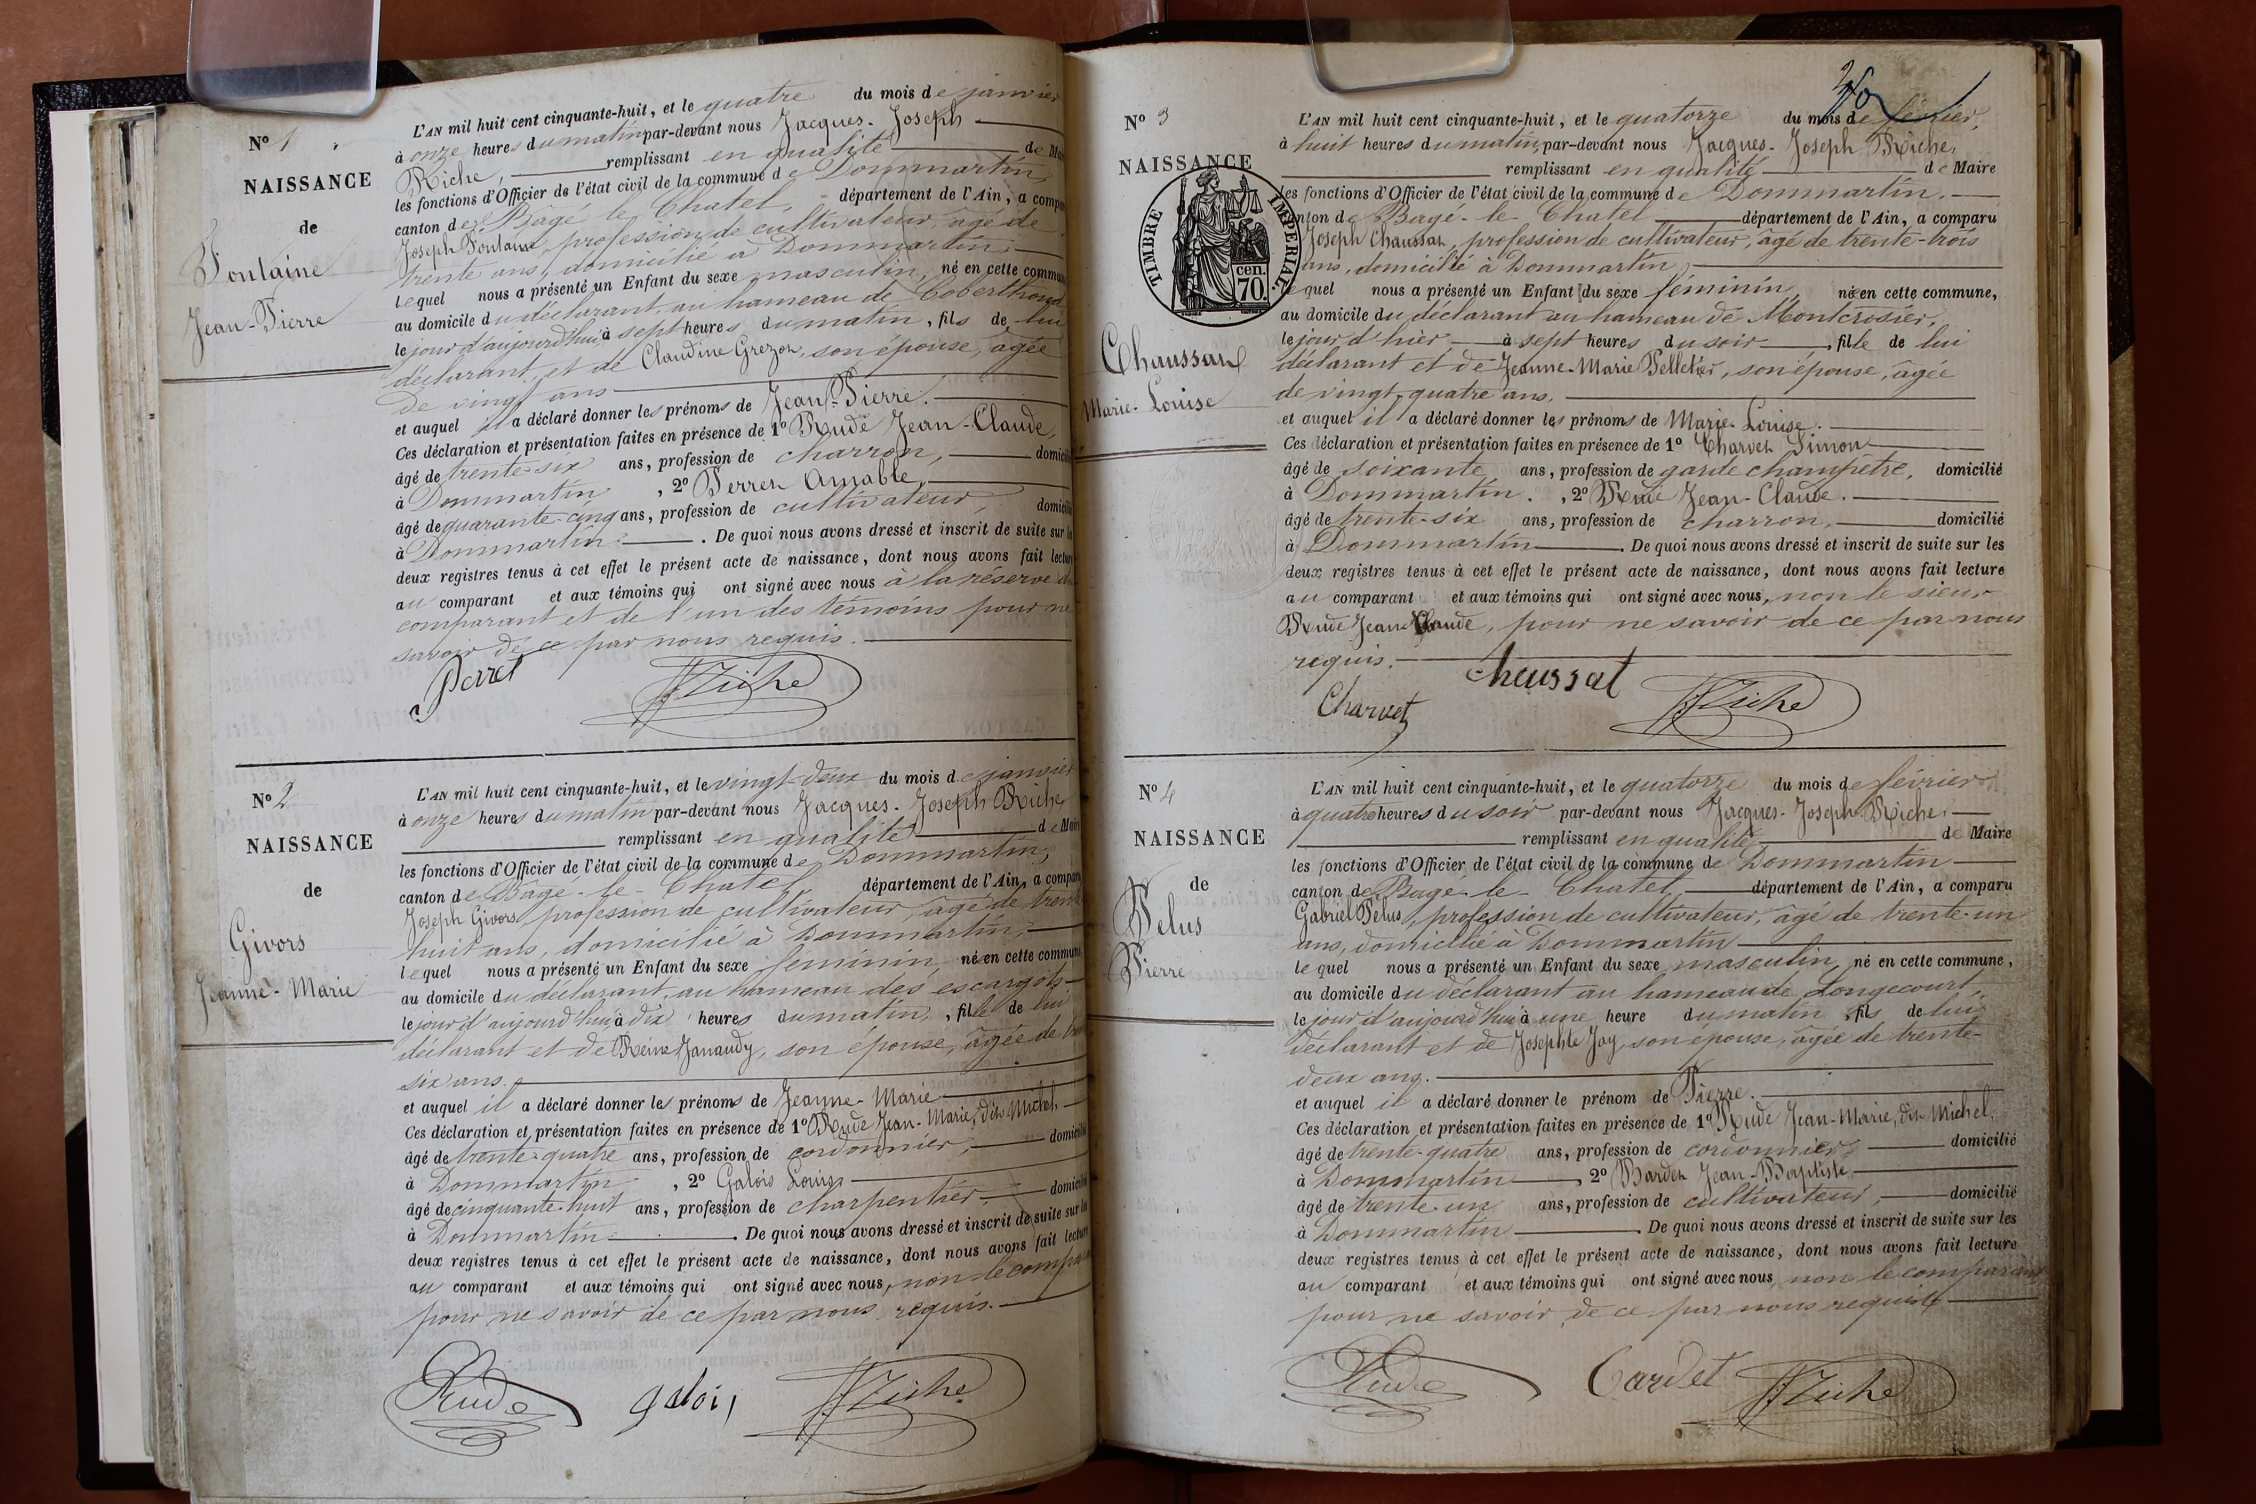 N° 1
NAISSANCE
de
Fontaine
Jean-Pierre
L'AN mil huit cent cinquante-huit, et le quatre du mois de janvier
à onze heures du matin par-devant nous Jacques-Joseph
Riche, remplissant en qualité de Mai
les fonctions d'Officier de l'état civil de la commune de Dommartin,
canton de Bâgé le Chatel, département de l'Ain, a compa
Joseph Fontaine, profession de cultivateur, âgé de
trente ans, domicilié à Dommartin,
lequel nous a présenté un Enfant du sexe masculin, né en cette commun
au domicile du déclarant, au hameau de
le jour d'aujourd'hui à sept heures du matin, fils de lui
déclarant et de Claudine Grezon, son épouse, âgée
de vingt ans
et auquel il a déclaré donner les prénoms de Jean-Pierre.
Ces déclaration et présentation faites en présence de 1° Rude Jean-Claude,
âgé de trente-six ans, profession de charron, domicili
à Dommartin, 2° Perret Amable,
âgé de quarante-cinq ans, profession de cultivateur, domicili
à Dommartin. De quoi nous avons dressé et inscrit de suite sur le
deux registres tenus à cet effet le présent acte de naissance, dont nous avons fait lectur
au comparant et aux témoins qui ont signé avec nous à la réserve du
comparant et de l'un des témoins pour ne
savoir de ce par nous requis.
Perret JJRiche
N° 2
NAISSANCE
de
Givors
Jeanne-Marie
L'AN mil huit cent cinquante-huit, et le vingt-deux du mois de janvier
à onze heures du matin par-devant nous Jacques-Joseph Riche
remplissant en qualité de Mair
les fonctions d'Officier de l'état civil de la commune de Dommartin,
canton de Bagé-le-Chatel, département de l'Ain, a comparu
Joseph Givors, profession de cultivateur, âgé de trente
huit ans, domicilié à Dommartin,
lequel nous a présenté un Enfant du sexe féminin, né en cette commun
au domicile du déclarant, au hameau des escargots
le jour d'aujourd'hui à dix heures du matin, fille de lui
déclarant et de Reine Janaudy, son épouse, âgée de
six ans.
et auquel il a déclaré donner les prénoms de Jeanne-Marie
Ces déclaration et présentation faites en présence de 1° Rude Jean-Marie, dit Michel,
âgé de trente-quatre ans, profession de cordonnier, domicilié
à Dommartin, 2° Galois Louis
âgé de cinquante-huit ans, profession de charpentier, domicilié
à Dommartin. De quoi nous avons dressé et inscrit de suite sur les
deux registres tenus à cet effet le présent acte de naissance, dont nous avons fait lecture
au comparant et aux témoins qui ont signé avec nous, non le compar
pour ne savoir de ce par nous requis.
Rude galois JJRiche
N° 3
NAISSANCE
TIMBRE IMPÉRIAL.
cen.
70.
Chaussat
Marie-Louise
L'AN mil huit cent cinquante-huit, et le quatorze du mois de février,
à huit heures du matin, par-devant nous Jacques-Joseph Riche,
remplissant en qualité de Maire
les fonctions d'Officier de l'état civil de la commune de Dommartin.
canton de Bagé-le-Chatel département de l'Ain, a comparu
Joseph Chaussat, profession de cultivateur, âgé de trente-trois
ans, domicilié à Dommartin,
lequel nous a présenté un Enfant du sexe féminin, né en cette commune,
au domicile du déclarant au hameau de Montcrosier,
le jour d'hier, à sept heures du soir, fille de lui
déclarant et de Jeanne-Marie Pelletier, son épouse, âgée
de vingt-quatre ans.
et auquel il a déclaré donner les prénoms de Marie-Louise.
Ces déclaration et présentation faites en présence de 1° Charvet Simon
âgé de soixante ans, profession de garde champêtre, domicilié
à Dommartin., 2° Rude Jean-Claude.
âgé de trente-six ans, profession de charron, domicilié
à Dommartin. De quoi nous avons dressé et inscrit de suite sur les
deux registres tenus à cet effet le présent acte de naissance, dont nous avons fait lecture
au comparant et aux témoins qui ont signé avec nous, non le sieur
Rude Jean Claude, pour ne savoir de ce par nous
requis.
Charvet chaussat JJRiche
N° 4
NAISSANCE
de
Pelus
Pierre
L'AN mil huit cent cinquante-huit, et le quatorze du mois de février
à quatre heures du soir par-devant nous Jacques-Joseph Riche,
remplissant en qualité de Maire
les fonctions d'Officier de l'état civil de la commune de Dommartin
canton de Bagé-le-Chatel, département de l'Ain, a comparu
Gabriel Pelus, profession de cultivateur, âgé de trente-un
ans, domicilié à Dommartin
lequel nous a présenté un Enfant du sexe masculin, né en cette commune,
au domicile du déclarant au hameau de Longecourt,
le jour d'aujourd'hui à une heure du matin, fils de lui
déclarant et de Josephte Jay, son épouse, âgée de trente-
deux ans.
et auquel il a déclaré donner le prénom de Pierre.
Ces déclaration et présentation faites en présence de 1° Rude Jean-Marie, dit Michel,
âgé de trente-quatre ans, profession de cordonnier, domicilié
à Dommartin, 2° Bardet Jean-Baptiste
âgé de trente-un ans, profession de cultivateur, domicilié
à Dommartin. De quoi nous avons dressé et inscrit de suite sur les
deux registres tenus à cet effet le présent acte de naissance, dont nous avons fait lecture
au comparant et aux témoins qui ont signé avec nous, non le comparant
pour ne savoir de ce par nous requis
Rude Bardet JJRiche